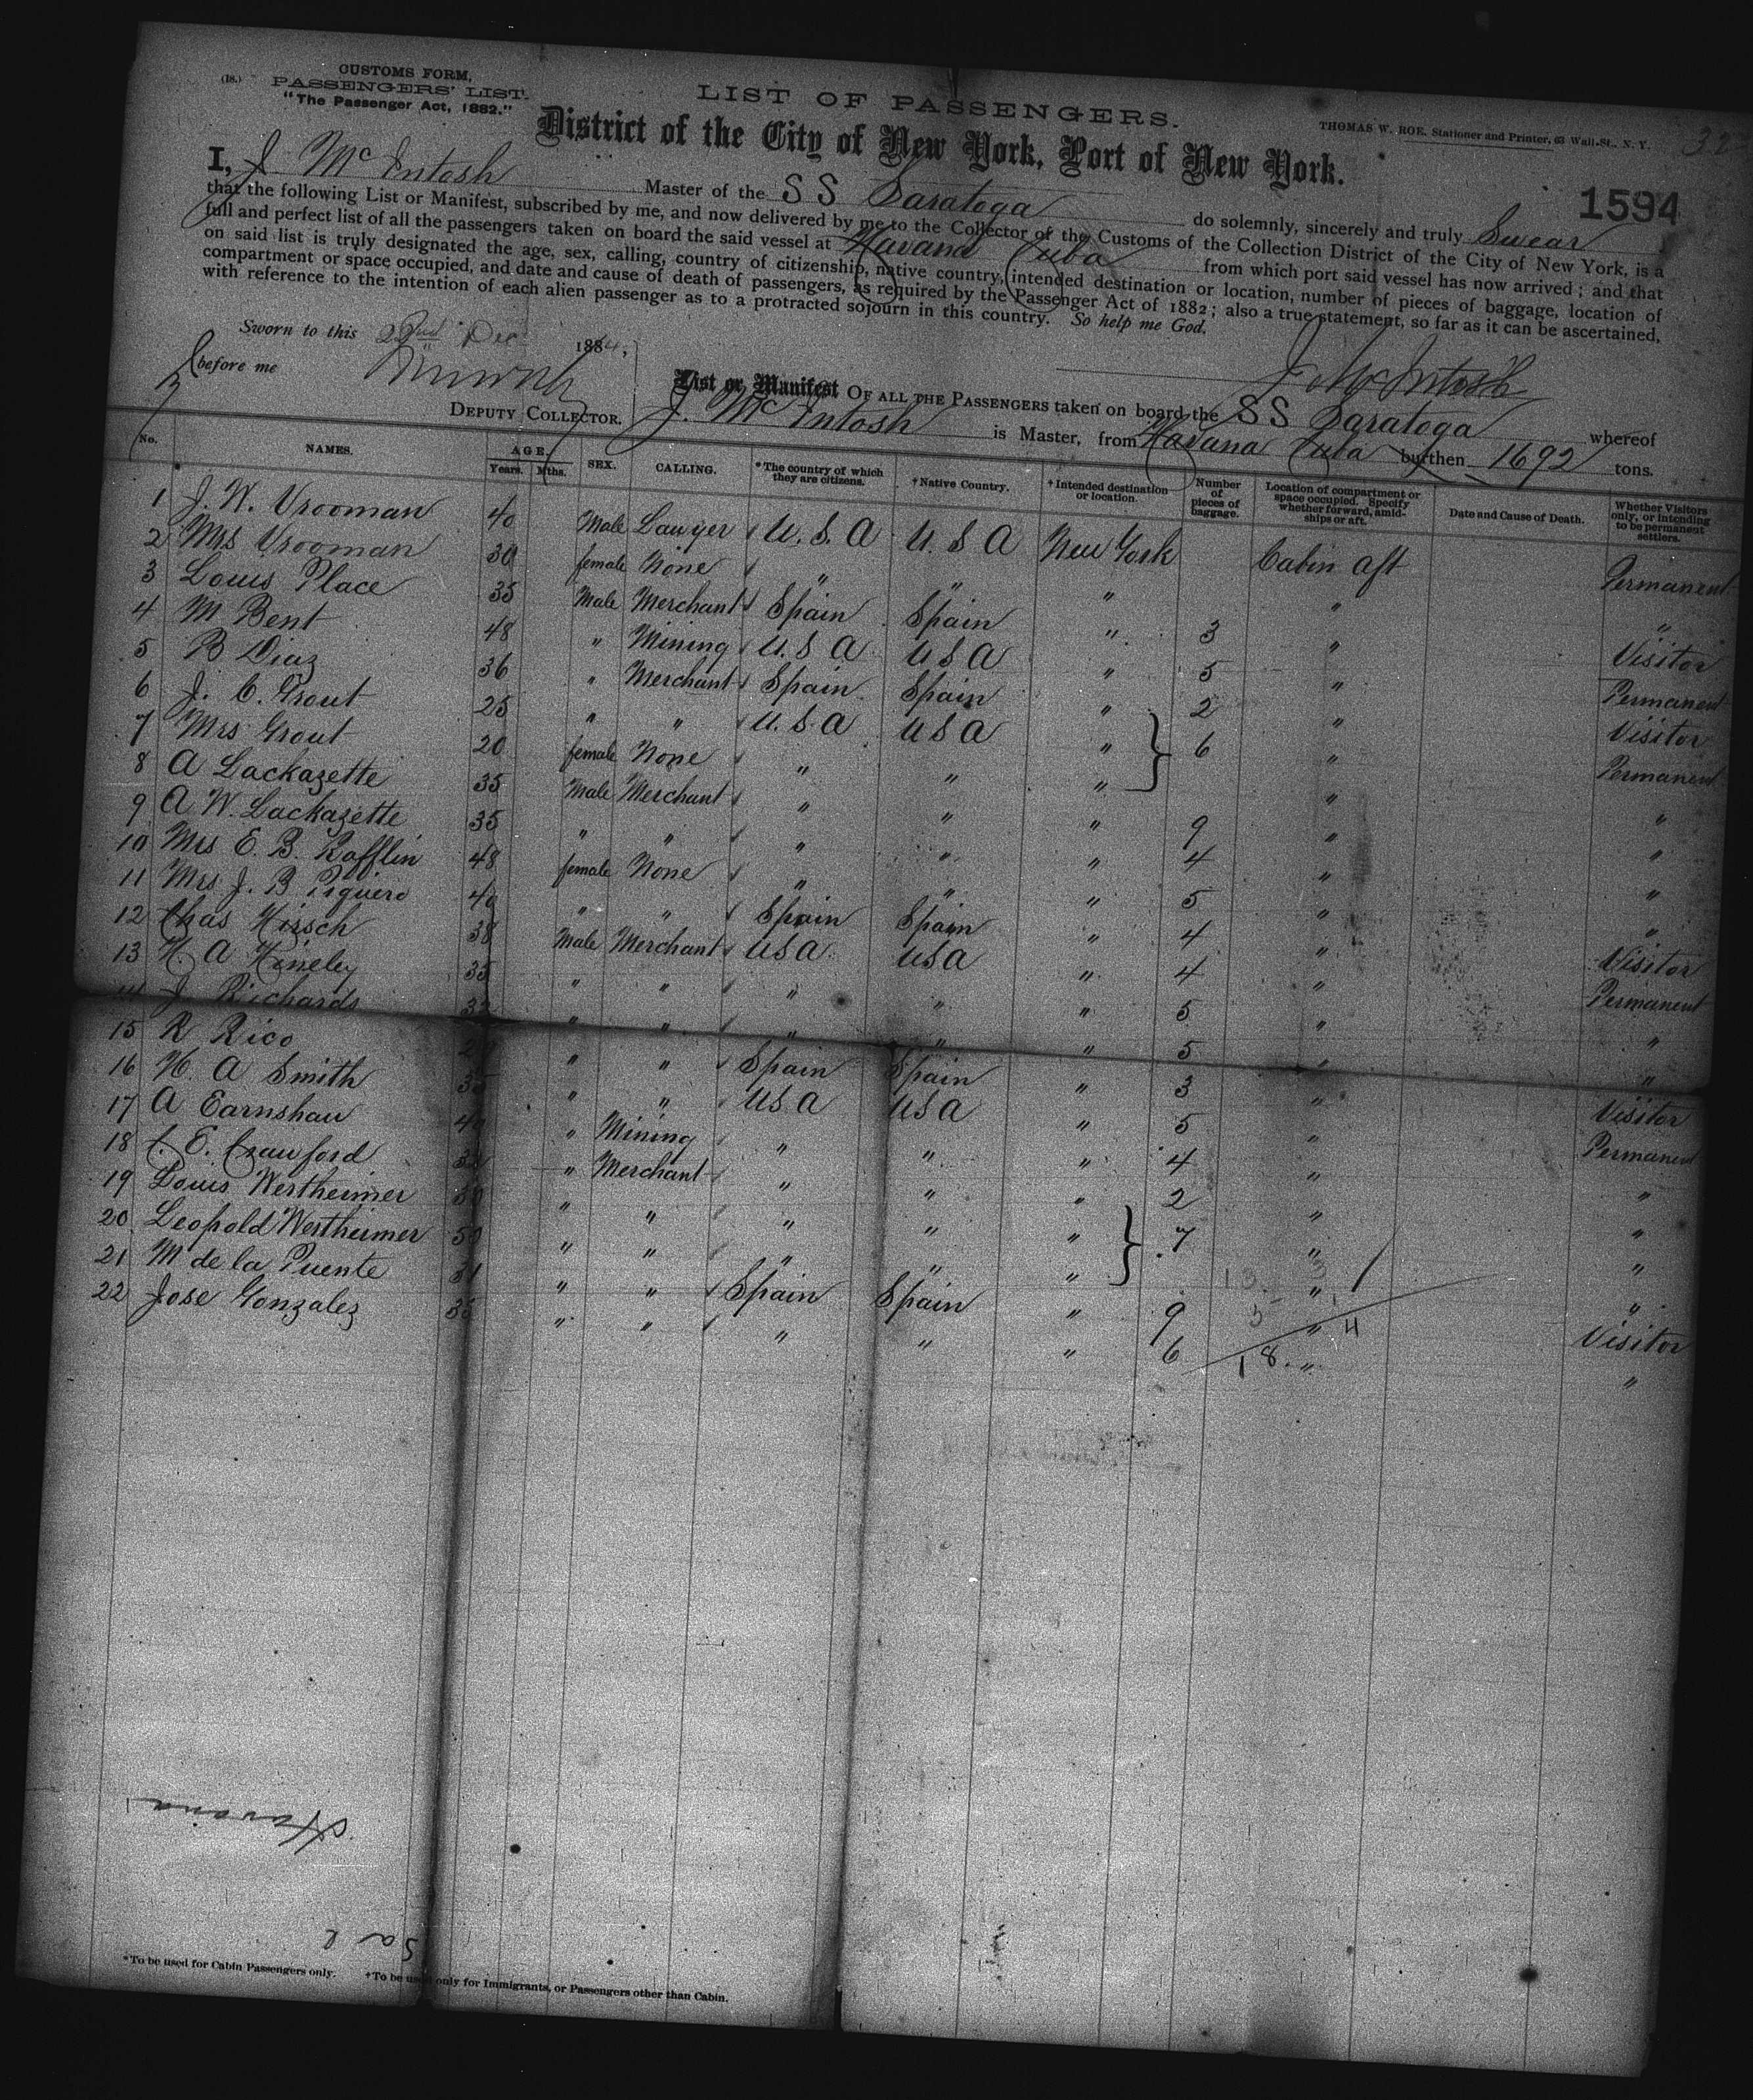 (18.) CUSTOMS FORM,
PASSENGERS' LIST.
"The Passenger Act, 1882."
LIST OF PASSENGERS.
THOMAS W. ROE, Stationer and Printer, 63 Wall-St., N. Y.
32
District of the City of New York, Port of New York.
1594
I, J. McIntosh Master of the SS Saratoga do solemnly, sincerely and truly Swear
that the following List or Manifest, subscribed by me, and now delivered by me to the Collector of the Customs of the Collection District of the City of New York, is a
full and perfect list of all the passengers taken on board the said vessel at Havana Cuba from which port said vessel has now arrived; and that
on said list is truly designated the age, sex, calling, country of citizenship, native country, intended destination or location, number of pieces of baggage, location of
compartment or space occupied, and date and cause of death of passengers, as required by the Passenger Act of 1882; also a true statement, so far as it can be ascertained,
with reference to the intention of each alien passenger as to a protracted sojourn in this country. So help me God.
Sworn to this 22nd Dec 1884,
before me
J. McIntosh
DEPUTY COLLECTOR.
List or Manifest OF ALL THE PASSENGERS taken on board the SS Saratoga whereof
J. McIntosh is Master, from Havana Cuba burthen 1692 tons.
No. NAMES. AGE. Years. Mths. SEX. CALLING. *The country of which they are citizens. †Native Country. †Intended destination or location. Number of pieces of baggage. Location of compartment or space occupied. Specify whether forward, amidships or aft. Date and Cause of Death. Whether Visitors only, or intending to be permanent settlers.
1 J. W. Vrooman 40 Male Lawyer U.S.A U.S.A New York Cabin Aft Permanent
2 Mrs Vrooman 30 female None " " " " "
3 Louis Place 35 Male Merchant Spain Spain " 3 " Visitor
4 M Bent 48 " Mining U.S.A U S A " 5 " Permanent
5 B Diaz 36 " Merchant Spain Spain " 2 " Visitor
6 J. C. Grout 25 " " U.S.A U S A " 6 " Permanent
7 Mrs Grout 20 female None " " " " "
8 A Lackazette 35 Male Merchant " " " 9 " "
9 A W. Lackazette 35 " " " " " 4 " "
10 Mrs E. B. Rafflin 48 female None " " " 5 " "
11 Mrs J. B Piguero 40 " " Spain Spain " 4 " Visitor
12 Chas Hirsch 38 Male Merchant USA USA " 4 " Permanent
13 H. A Hineley 35 " " " " " 5 " "
14 J Richards 32 " " " " " 5 " "
15 R Rico " " Spain Spain " 3 " Visitor
16 H. A Smith 35 " " USA USA " 5 " Permanent
17 A Earnshaw " Mining " " " 4 " "
18 C. E. Crawford " Merchant " " " 2 " "
19 Louis Wertheimer " " " " " 7 " "
20 Leopold Wertheimer " " " " " " "
21 M de la Puente " " Spain Spain " 9 " Visitor
22 Jose Gonzalez 35 " " " " " 6 " "
18. 4
Havana
*To be used for Cabin Passengers only. †To be used only for Immigrants, or Passengers other than Cabin.